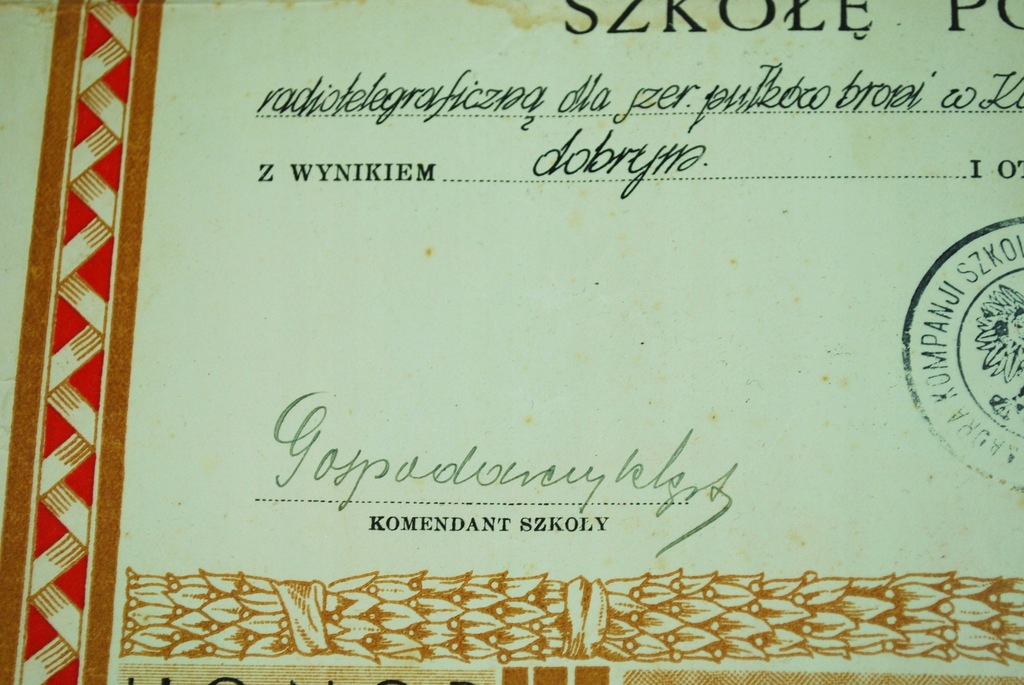 SZKOŁĘ PO
radiotelegraficzną dla szer. pułków broni w K
Z WYNIKIEM dobrym. I OT
KADRA KOMPANJI SZKOL
Gospodarczyk
KOMENDANT SZKOŁY
HONOR